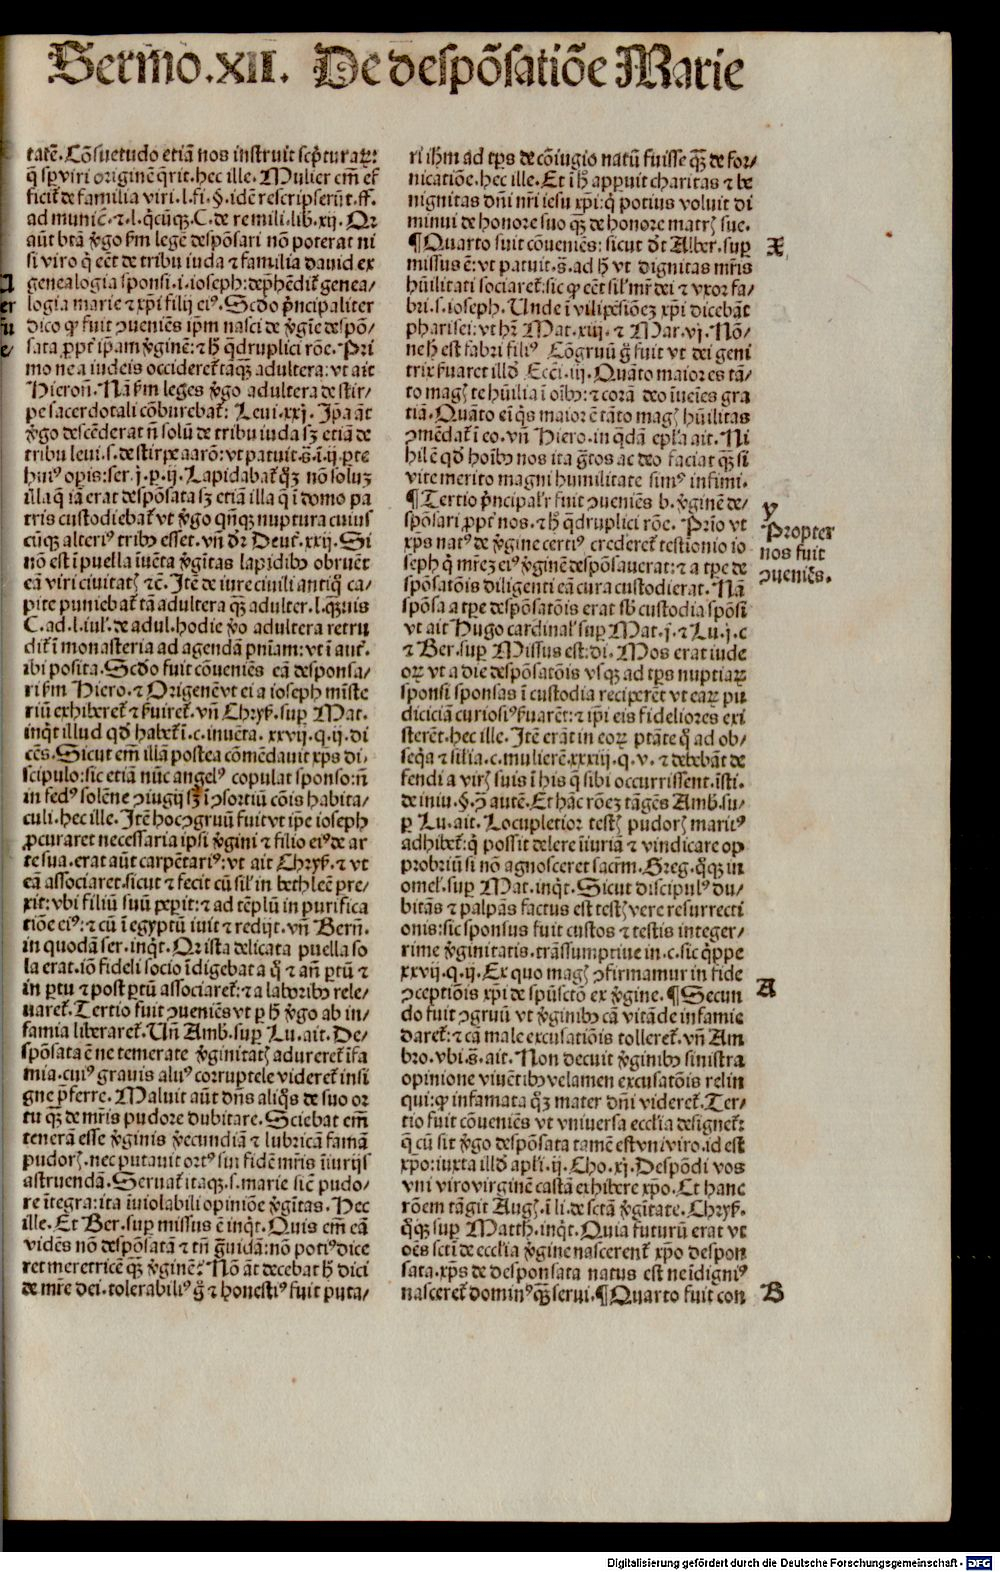 Sermo.XII. De despōsatiōe Marie
tatē. Cōsuetudo etiā nos instruit scp̄turaꝝ:
q̄ sp̄ viri originē q̄rit. hec ille. Mulier em̄ ef
ficit᷑ de familia viri. l. fi. §. idē rescripserūt. ff.
ad munic̄. ⁊. l. q̄cūqꝫ. C. de re mili. lib. xij. Qꝛ
aūt btā v̄go ẜm legē despōsari nō poterat ni
si viro q̄ eēt de tribu iuda ⁊ familia dauid ex
genealogia sponsi. i. ioseph: dep̄hēdit᷑ genea/
logia marie ⁊ xp̄i filij eiꝰ. Scd̄o p̄ncipaliter
dico ꝙ fuit ꝯueniēs ip̄m nasci de v̄gīe despō/
sata ꝓpt̄ ip̄am v̄ginē: ⁊ h̄ q̄druplici rōe. Pri
mo ne a iudeis occideret᷑ tāqꝫ adultera: vt ait
Hieron̄. Nā ẜm leges v̄go adultera de stir/
pe sacerdotali cōburebat᷑: Leui. xxj. Ip̄a āt
v̄go descēderat n̄ solū de tribu iuda sꝫ etiā de
tribu leui. s. de stirpe aarō: vt patuit. s̄. i. ij. ꝑte
huiꝰ opis: ser. j. p. ij. Lapidabat᷑ q̄ꝫ nō soluꝫ
illa q̄ iā erat despōsata sꝫ etiā illa q̄ ī domo pa
tris custodiebat᷑ vt v̄go qn̄qꝫ nuptura cuius
cūqꝫ alteriꝰ tribꝰ esset. vn̄ dr̄ Deut᷑. xxij. Si
nō est ī puella iuēta v̄gītas lapidibꝰ obruēt
eā viri ciuitatꝭ ⁊c̄. Itē de iure ciuili antiq̄ ca/
pite puniebat᷑ tā adultera qꝫ adulter. l. qꝫuis
C. ad. l. iul̓. de adul. hodie v̄o adultera retru
dit᷑ ī monasteria ad agendā pn̄iam: vt ī aut᷑.
ibi posita. Scd̄o fuit cōueniēs eā desponsa/
ri ẜm Hiero. ⁊ Origenē vt ei a ioseph mīste
riū exhiberet᷑ ⁊ ẜuiret᷑. vn̄ Chryẜ. suꝑ Mat.
inq̄t illud qd̄ habet᷑ ī. c. inuēta. xxvij. q. ij. di
cēs. Sicut em̄ illā postea cōmēdauit xp̄s di/
scipulo: sic etiā nūc angelꝰ copulat sponso: n̄
in fedꝰ solēne ꝯiugij sꝫ ī ꝯsortiū cōis habita/
culi. hec ille. Itē hoc ꝯgruū fuit vt ip̄e ioseph
ꝓcuraret necessaria ipsi v̄gini ⁊ filio eiꝰ de ar
te sua. erat aūt carpētariꝰ: vt ait Chryẜ. ⁊ vt
eā associaret. sicut ⁊ fecit cū sil̓ in bethleē pre/
xit: vbi filiū suū peperit: ⁊ ad tēplū in purifica
tiōe eiꝰ: ⁊ cū ī egyptū iuit ⁊ redijt. vn̄ Bern̄.
in quodā ser. inq̄t. Qꝛ ista delicata puella so
la erat. iō fideli socio īdigebat a q̄ ⁊ an̄ ꝑtū ⁊
in ꝑtu ⁊ post ꝑtū associaret᷑: ⁊ a laboribꝰ rele/
uaret᷑. Tertio fuit ꝯueniēs vt ꝑ h̄ v̄go ab in/
famia liberaret᷑. Un̄ Amb. suꝑ Lu. ait. De/
spōsata ē ne temerate v̄ginitatꝭ adureret᷑ īfa
mia. cuiꝰ grauis aluꝰ corruptele videret᷑ insi
gne p̄ferre. Maluit aūt dn̄s aliq̄s de suo or
tu qꝫ de mr̄is pudore dubitare. Sciebat em̄
tenerā esse v̄ginis v̄ecundiā ⁊ lubricā famā
pudorꝭ. nec putauit ortꝰ sui fidē mr̄is īiurijs
astruendā. Seruat᷑ itaqꝫ. s. marie sicē pudo/
re ītegra: ita īuiolabili opiniōe v̄gītas. Hec
ille. Et Ber. suꝑ missus ē inq̄t. Quis em̄ eā
vidēs nō despōsatā ⁊ tn̄ gꝛauidā: nō potiꝰ dice
ret meretricē qꝫ v̄ginē? Nō āt decebat h̄ dici
de mr̄e dei. tolerabiliꝰ g̊ ⁊ honestiꝰ fuit puta/
ri ih̄m ad tp̄s de cōiugio natū fuisse qꝫ de for/
nicatiōe. hec ille. Et ī h̄ apꝑuit charitas ⁊ be
nignitas dn̄i nr̄i iesu xp̄i: q̄ potius voluit di
minui de honore suo qꝫ de honore matrꝭ sue.
¶Quarto fuit cōueniēs: sicut dt̄ Alber. suꝑ
missus ē: vt patuit. s̄. ad h̄ vt dignitas mr̄is
hūilitati sociaret᷑: sic ꝙ eēt sil̓ mr̄ dei ⁊ vxor fa/
bri. s. ioseph. Unde ī vilipēsiōeꝫ xp̄i dicebāt
pharisei: vt hr̄ Mat. xiij. ⁊ Mar. vj. Nō/
ne h̄ est fabri filiꝰ Cōgruū g̊ fuit vt dei geni
trix ẜuaret illd̄ Ecci. iij. Quāto maior es tā/
to magꝭ te hūilia ī oībꝰ: ⁊ corā deo īuēies gra
tiā. Quāto ei̅ q̄s maior ē tāto magꝭ hūilitas
ꝯmēdat᷑ ī eo. vn̄ Hiero. in q̄dā epl̓a ait. Ni
hil ē qd̄ hoībꝰ nos ita gͣtos ac deo faciat qꝫ si
vite merito magni humilitate simꝰ infimi.
¶Tertio p̄ncipal̓r fuit ꝯueniēs b. v̄ginē de/
spōsari ꝓpt᷑ nos. ⁊ h̄ q̄druplici rōe. Prīo vt
xp̄s natꝰ de v̄gine certiꝰ crederet᷑ testionio io
seph q̄ mr̄eꝫ eiꝰ v̄ginē despōsauerat: ⁊ a tpe de
spōsatōis diligenti eā cura custodierat. Nā
spōsa a tpe despōsatōis erat sb̄ custodia spōsi
vt ait Hugo cardinal̓ suꝑ Mat. j. ⁊ Lu. j. c
⁊ Ber. suꝑ Missus est: di. Mos erat iude
oꝝ vt a die despōsatōis vsqꝫ ad tp̄s nuptiaꝝ
sponsi sponsas ī custodia reciperēt vt eaꝝ pu
diciciā curiosiꝰ ẜuarēt: ⁊ ip̄i eis fideliores exi
sterēt. hec ille. Itē erāt in eoꝝ ptāte q̄ ad ob/
seq̄a ⁊ similia. c. mulierē. xxxiij. q. v. ⁊ debebāt de
fendi a virꝭ suis ī his q̄ sibi occurrissent. īsti.
de iniu. §. ꝑ autē. Et hāc rōeꝫ tāgēs Amb. su/
ꝑ Lu. ait. Locupletior testꝭ pudorꝭ maritꝰ
adhibet᷑: q̄ possit delere iiuriā ⁊ vindicare op
probriū si nō agnosceret sacrm̄. Greg. q̄qꝫ in
omel̓. suꝑ Mat. inq̄t. Sicut discipulꝰ du/
bitās ⁊ palpās factus est testꝭ vere resurrecti
onis: sic sponsus fuit custos ⁊ testis integer/
rime v̄ginitatis. trāssumptiue in. c. sic q̄ppe
xxvij. q. ij. Ex quo magꝭ ꝯfirmamur in fide
ꝯceptiōis xp̄i de spūsctō ex v̄gine. ¶Secun
do fuit ꝯgruū vt v̄ginibꝰ cā vitāde infamie
daret᷑: ⁊ cā male excusatiōis tolleret᷑. vn̄ Am
bro. vbi. s̄. ait. Non decuit v̄ginibꝰ sinistra
opinione viuētibꝰ velamen excusatōis relin
qui: ꝙ infamata q̄ꝫ mater dn̄i videret᷑. Ter/
tio fuit cōueniēs vt vniuersa ecclīa designet᷑:
q̄ cū sit v̄go despōsata tamē est vni viro. id est
xp̄o: iuxta illd̄ apl̓i. ij. Cho. xj. Despōdi vos
vni viro virginē castā exhibere xp̄o. Et hanc
rōem tāgit Augꝭ. ī li. de sctā v̄gītate. Chryẜ.
q̄qꝫ suꝑ Matth. inq̄t. Quia futurū erat vt
oēs scti̅ de ecclīa v̄gine nascerent᷑ xp̄o despon
sata. xp̄s de desponsata natus est ne īdigniꝰ
nasceret᷑ dominꝰ qꝫ serui. ¶Quarto fuit con
X
y
Propter
nos fuit
ꝯueniēs.
A
B
Digitalisierung gefördert durch die Deutsche Forschungsgemeinschaft - DFG